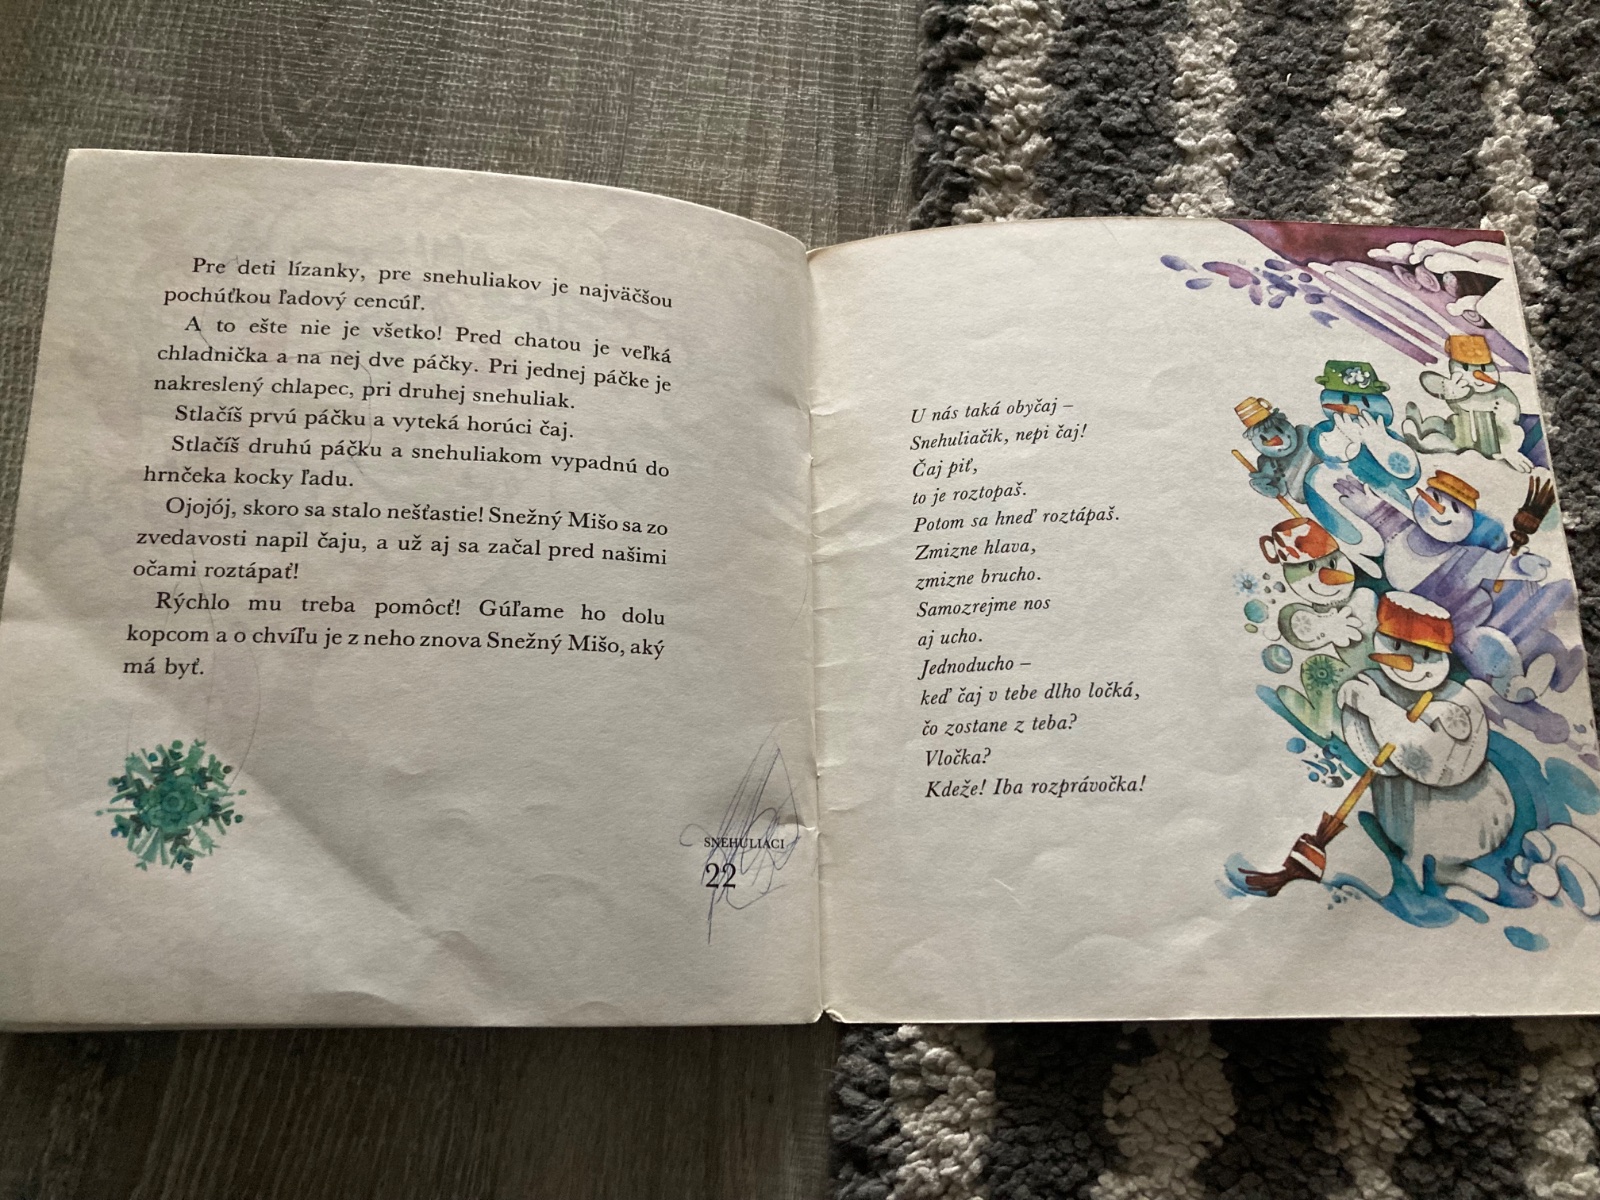 Pre deti lízanky, pre snehuliakov je najväčšou
pochúťkou ľadový cencúľ.
A to ešte nie je všetko! Pred chatou je veľká
chladnička a na nej dve páčky. Pri jednej páčke je
nakreslený chlapec, pri druhej snehuliak.
Stlačíš prvú páčku a vyteká horúci čaj.
Stlačíš druhú páčku a snehuliakom vypadnú do
hrnčeka kocky ľadu.
Ojojój, skoro sa stalo nešťastie! Snežný Mišo sa zo
zvedavosti napil čaju, a už aj sa začal pred našimi
očami roztápať!
Rýchlo mu treba pomôcť! Gúľame ho dolu
kopcom a o chvíľu je z neho znova Snežný Mišo, aký
má byť.
SNEHULIACI
22
U nás taká obyčaj –
Snehuliačik, nepi čaj!
Čaj piť,
to je roztopaš.
Potom sa hneď roztápaš.
Zmizne hlava,
zmizne brucho.
Samozrejme nos
aj ucho.
Jednoducho –
keď čaj v tebe dlho ločká,
čo zostane z teba?
Vločka?
Kdeže! Iba rozprávočka!